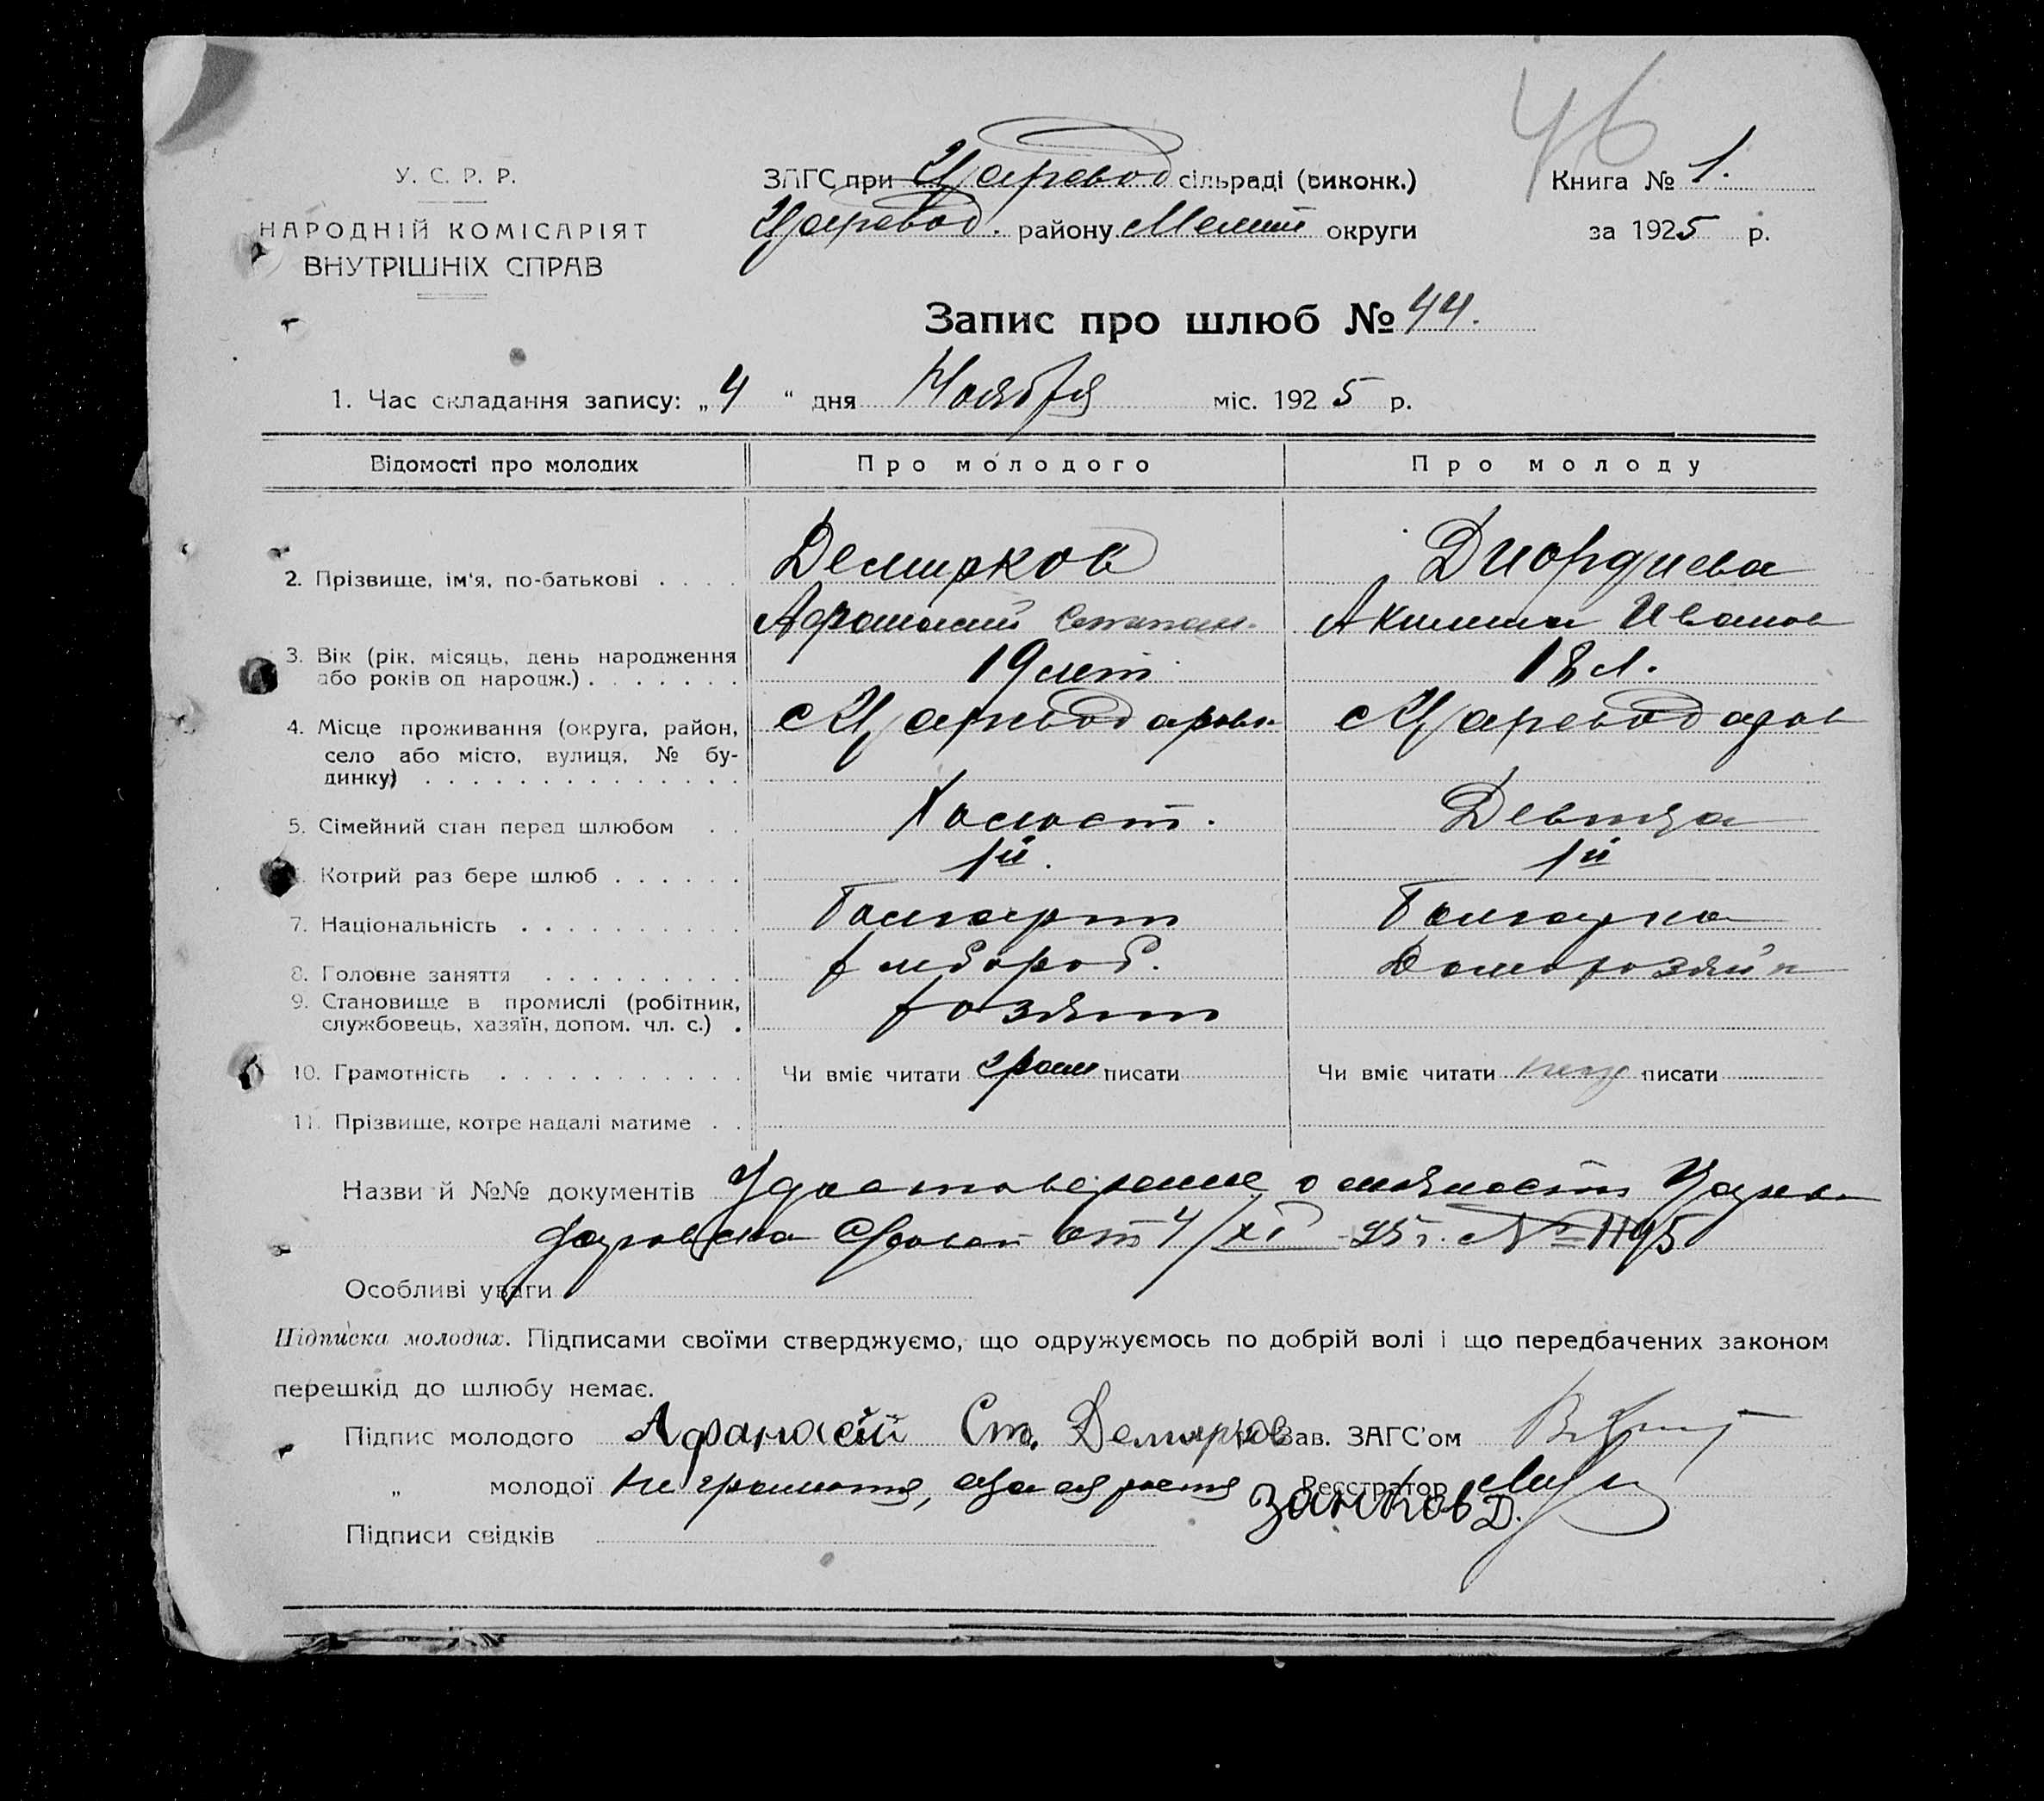 46
У. С. Р. Р.
НАРОДНІЙ КОМІСАРІЯТ
ВНУТРІШНІХ СПРАВ
ЗАГС при Царевод сільраді (виконк.)
Царевод. району Мелит округи
Книга № 1.
за 1925 р.
Запис про шлюб № 44.
1. Час складання запису: „4“ дня Ноября міс. 1925 р.
Відомості про молодих Про молодого Про молоду
2. Прізвище, ім'я, по-батькові . . . . Демирков Диордиева
Афанасий Степан. Акилина Иванов
3. Вік (рік, місяць, день народження
або років од народж.) . . . . . . . 19 лет. 18 л.
4. Місце проживання (округа, район, с Царевод аровк с Царевод аров
село або місто, вулиця, № бу-
динку) . . . . . . . . . . . . . .
5. Сімейний стан перед шлюбом . . Холост. Девица
Котрий раз бере шлюб . . . . . . 1й. 1й
7. Національність . . . . . . . . . . Болгарин Болгарка
8. Головне заняття . . . . . . . . . хлебороб. Домохозяйк
9. Становище в промислі (робітник,
службовець, хазяїн, допом. чл. с.) . хозяин
10. Грамотність . . . . . . . . . . . Чи вміє читати грам писати Чи вміє читати писати
11. Прізвище, котре надалі матиме . .
Назви й №№ документів Удостоверение о личности Царево
даровска от 4/XI-25 г. № 1195
Особливі уваги
Підписка молодих. Підписами своїми стверджуємо, що одружуємось по добрій волі і що передбачених законом
перешкід до шлюбу немає.
Підпис молодого Афанасій Ст. Демирков Зав. ЗАГС'ом
„ молодої не грамотна, Реєстратор
Занков Д.
Підписи свідків